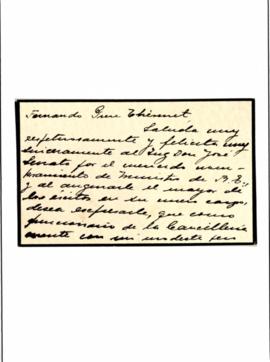 Fernando
Saluda muy
respetuosamente y felicita muy
sinceramente al Sr. Don José
Serrato por el merecido nom-
bramiento de Ministro de R. E.,
y al augurarle el mayor de
los éxitos en su nuevo cargo,
desea expresarle, que como
funcionario de la Cancillería
cuente con mi modesta